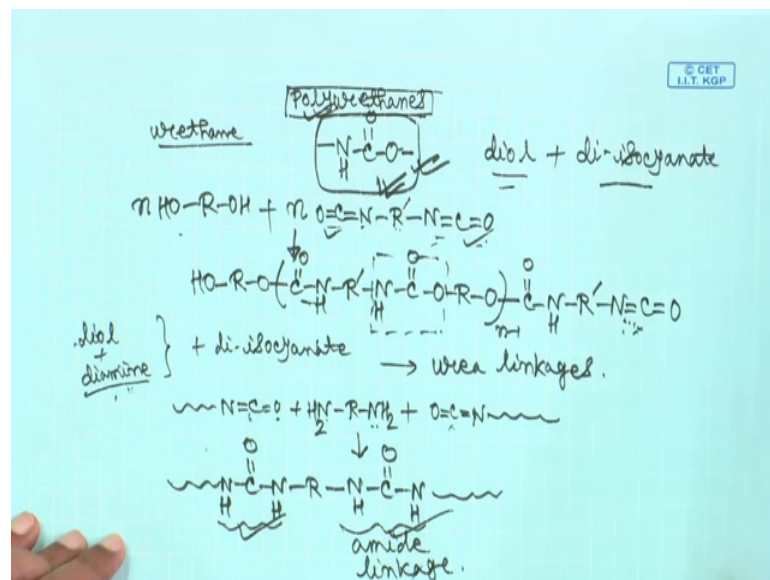 © CET
I.I.T. KGP
Polyurethanes
urethane
O
||
-N-C-O-
H
diol + di-isocyanate
n HO-R-OH + n O=C=N-R'-N=C=O
↓
O O O
|| || ||
HO-R-O-(C-N-R'-N-C-O-R-O)n-1-C-N-R'-N=C=O
H H H
diol
+
diamine } + di-isocyanate → urea linkages.
N=C=O + H2N-R-NH2 + O=C=N
↓
O O
|| ||
N-C-N-R-N-C-N
H H H H
amide
linkage.